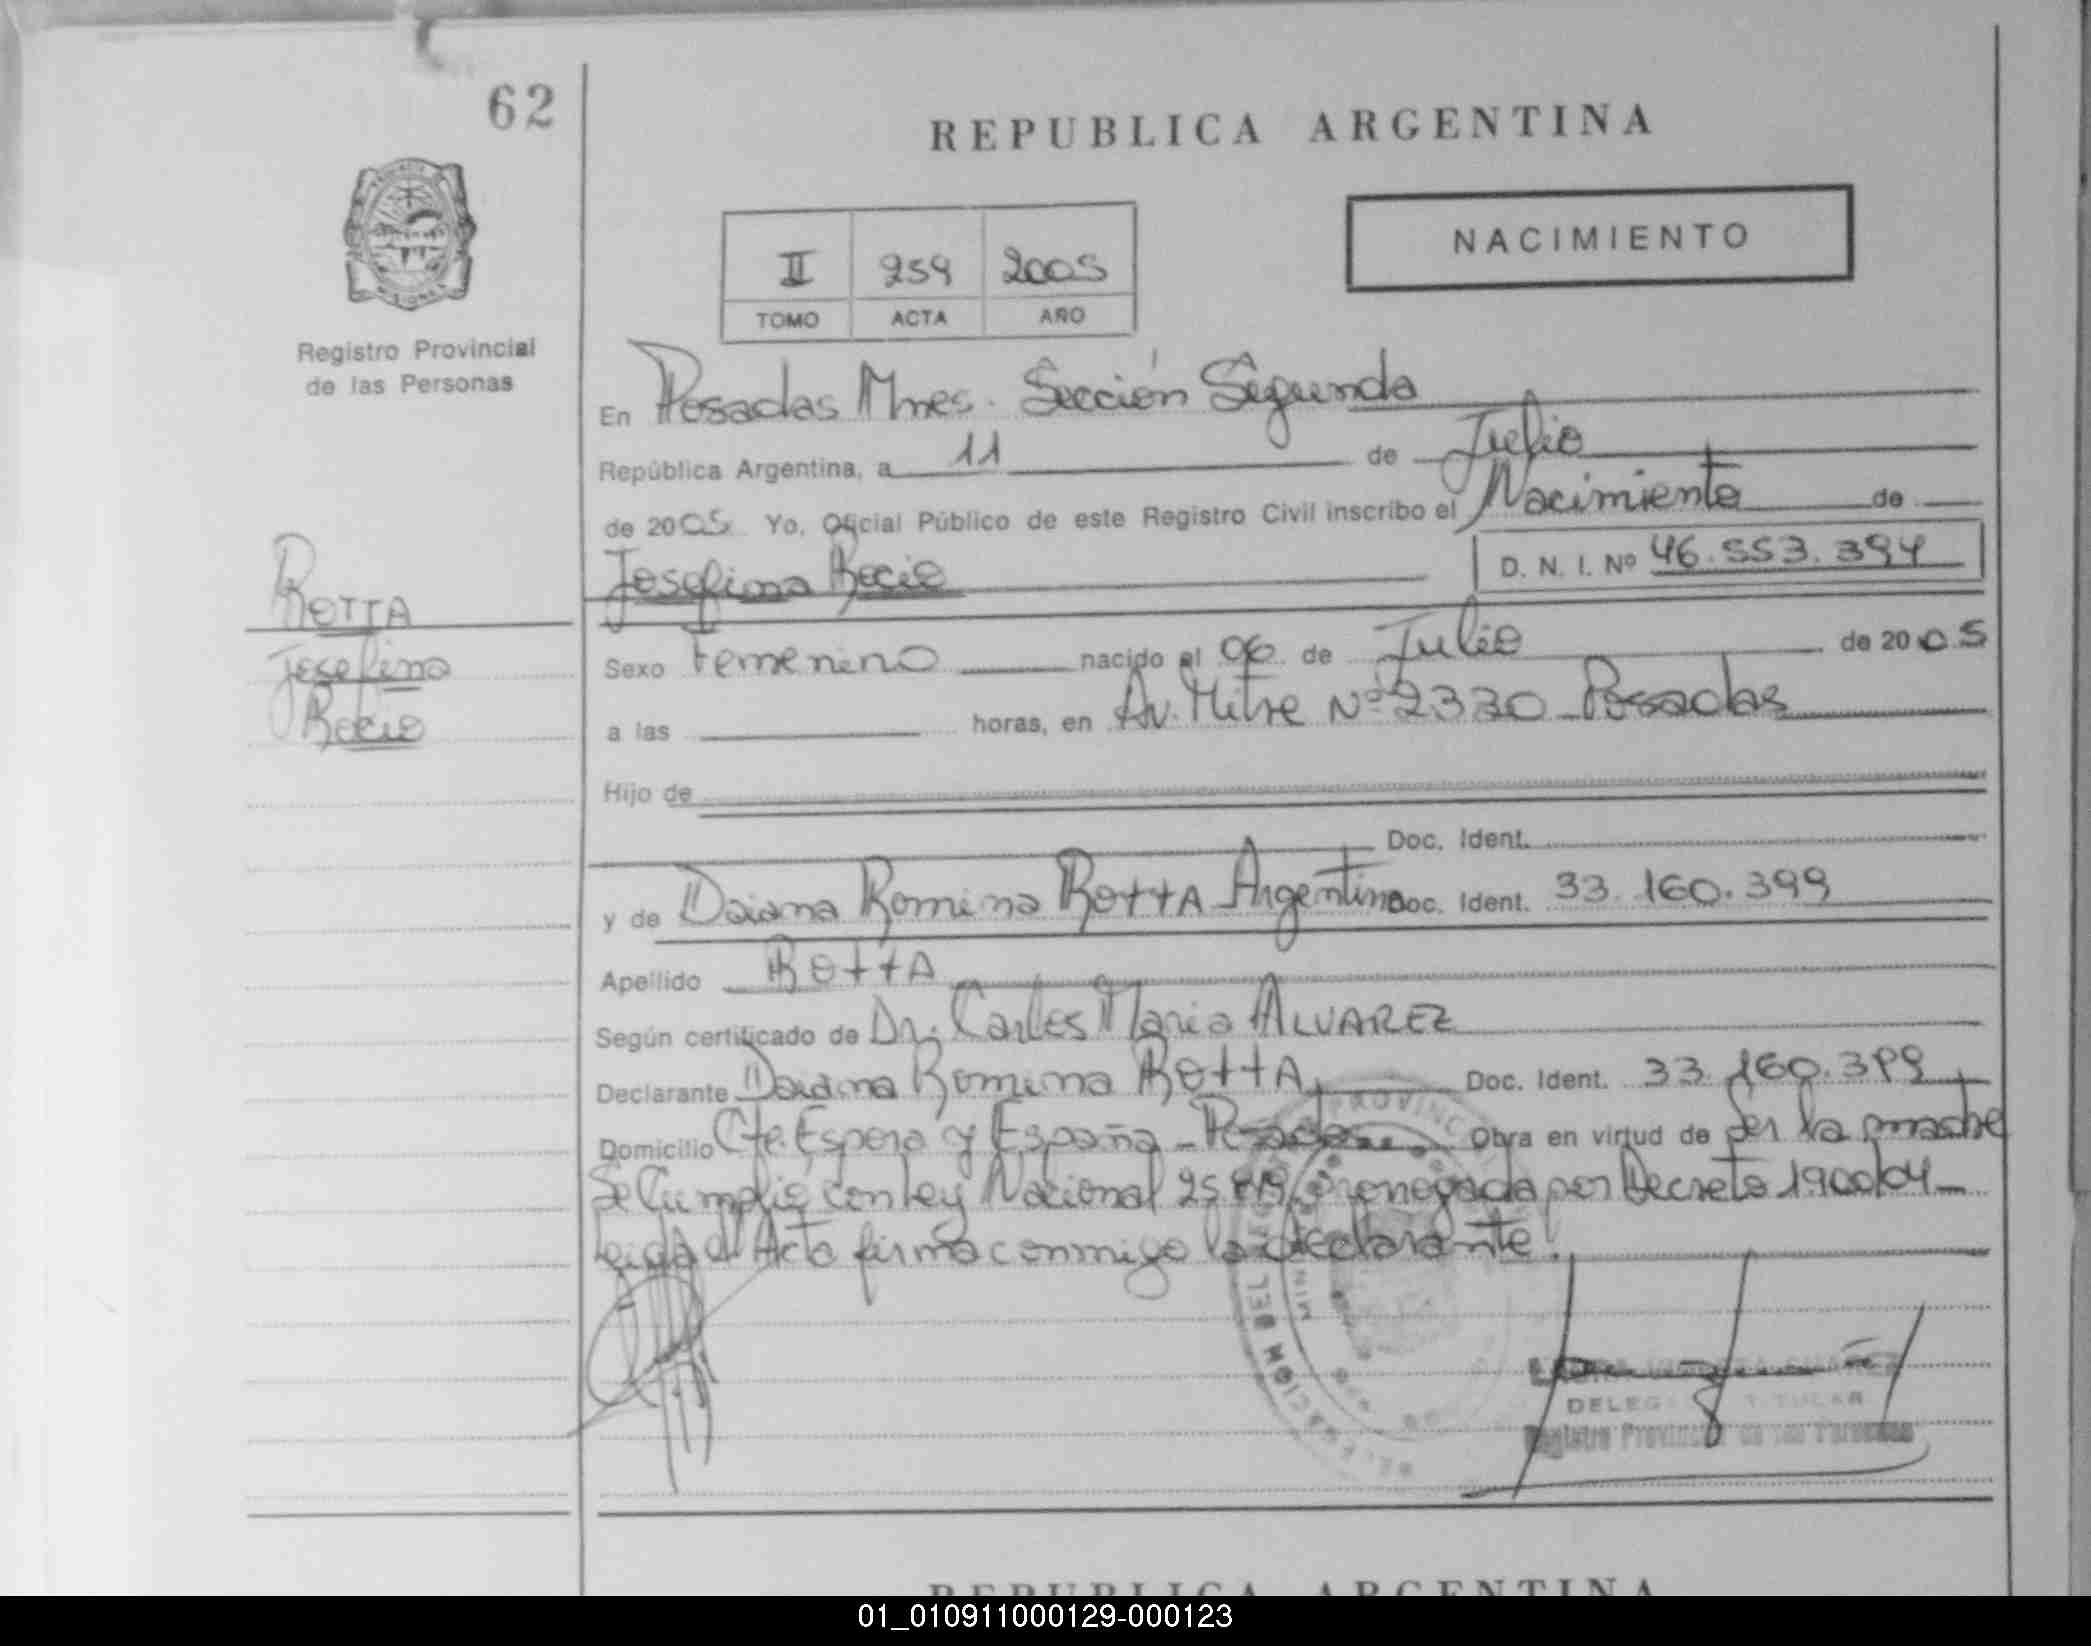 62
REPUBLICA ARGENTINA
NACIMIENTO
II 259 2005
TOMO ACTA AÑO
Registro Provincial
de las Personas
En Posadas Mnes. Sección Segunda
República Argentina, a 11 de Julio
de 2005 Yo, Oficial Público de este Registro Civil inscribo el Nacimiento de
Josefina Rocio D. N. I. Nº 46.553.394
ROTTA
Josefina
Rocio
Sexo Femenino nacido el 06 de Julio de 2005
a las horas, en Av. Mitre Nº 2330 Posadas
Hijo de
Doc. Ident.
y de Daiana Romina ROttA Argentina Doc. Ident. 33.160.399
Apellido ROttA
Según certificado de Dr. Carlos Maria ALVAREZ
Declarante Daiana Romina ROttA Doc. Ident. 33.160.399
Domicilio Cte. Espora y España - Posadas Obra en virtud de ser la madre
Se Cumplió con ley Nacional 25.819 prorrogada por Decreto 1900/04
Leida el Acta firma conmigo la declarante.
PROVINC
DEL
MINI
DELEG TITULAR
Registro Provincial de las Personas
REPUBLICA ARGENTINA
01_010911000129-000123